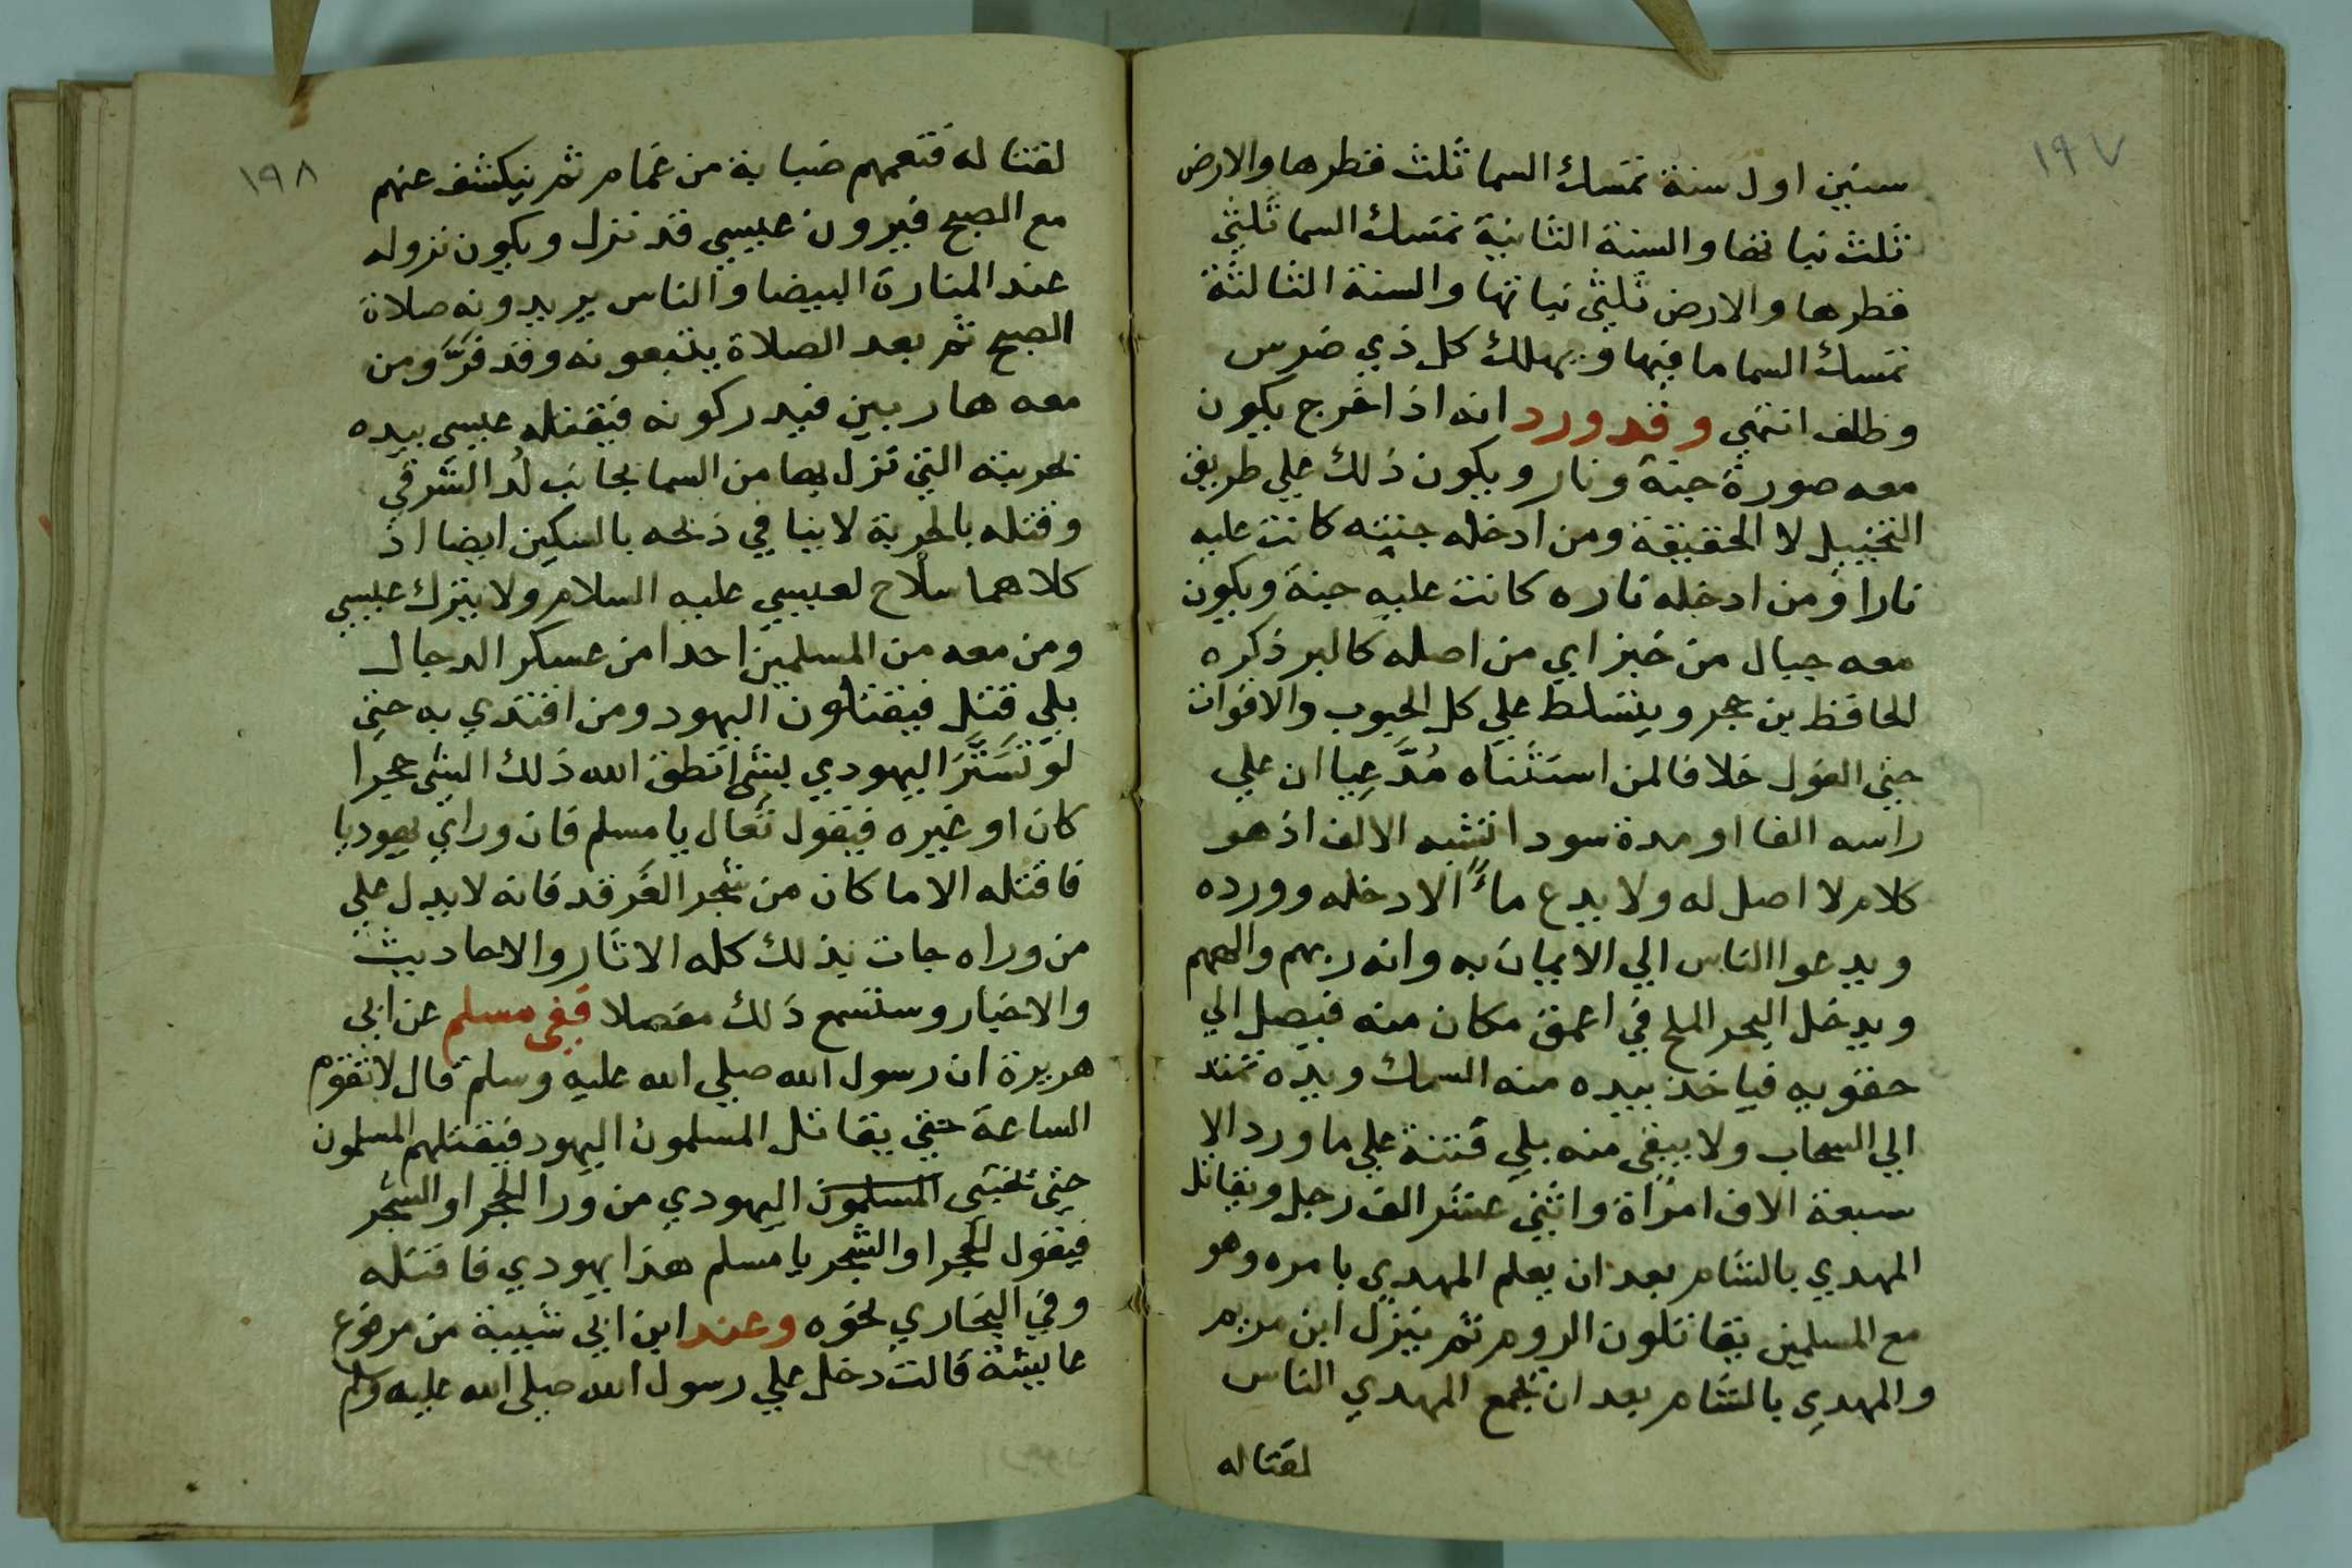 ١٩٧
سنين اول سنة تمسك السما ثلث قطرها والارض
ثلث نباتها والسنة الثانية تمسك السما ثلثي
قطرها والارض ثلثي نباتها والسنة الثالثة
تمسك السما ما فيها ويهلك كل ذي ضرس
وظلف انتهي وقد ورد انه اذا خرج يكون
معه صورة جنة ونار ويكون ذلك علي طريق
التخييل لا الحقيقة ومن ادخله جنته كانت عليه
نارا ومن ادخله ناره كانت عليه جنة ويكون
معه جبال من خبز اي من اصله كالبر ذكره
الحافظ بن حجر ويتسلط علي كل الحبوب والاقوات
حتي الفول خلافا لمن استثناه مُدَّعِيا ان علي
راسه الفا او مدة سودا تشبه الالف اذ هو
كلام لا اصل له ولا يدع ماءً الا دخله وورده
ويدعوا الناس الي الايمان به وانه ربهم والههم
ويدخل البحر الملح في اعمق مكان منه فيصل الي
حقويه فياخذ بيده منه السمك ويده تمتد
الي السحاب ولا يبقي منه بلي فتنة علي ما ورد الا
سبعة الاف امراة واثني عشر الف رجل ويقاتل
المهدي بالشام بعد ان يعلم المهدي بامره وهو
مع المسلمين يقاتلون الروم ثم ينزل ابن مريم
والمهدي بالشام بعد ان يجمع المهدي الناس
لقتاله
١٩٨
لقتاله فتعمهم ضبابة من غمام ثم ينكشف عنهم
مع الصبح فيرون عيسي قد نزل ويكون نزوله
عند المنارة البيضا والناس يريدونه صلاة
الصبح ثم بعد الصلاة يتبعونه وقد فَرَّ ومن
معه هاربين فيدركونه فيقتله عيسي بيده
بحربته التي نزل بها من السما بجانب لُد الشرقي
وقتله بالحربة لا ينافي ذبحه بالسكين ايضا اذ
كلاهما سلاح لعيسي عليه السلام ولا يترك عيسي
ومن معه من المسلمين احدا من عسكر الدجال
بلي قتل فيقتلون اليهود ومن اقتدي به حتي
لو تَسَتَّرَ اليهودي بشئ انطق الله ذلك الشئ حجرا
كان او غيره فيقول تعال يا مسلم فان وراي يهوديا
فاقتله الا ما كان من شجر الغرقد فانه لا يدل علي
من وراه جات بذلك كله الاثار والاحاديث
والاخبار وستسمع ذلك مفصلا ففي مسلم عن ابي
هريرة ان رسول الله صلي الله عليه وسلم قال لا تقوم
الساعة حتي يقاتل المسلمون اليهود فيقتلهم المسلمون
حتي يختبي المسلمون اليهودي من ورا الحجر او الشجر
فيقول الحجر او الشجر يا مسلم هذا يهودي فاقتله
وفي البخاري نحوه وعند ابن ابي شيبة من مرفوع
عايشة قالت دخل علي رسول الله صلي الله عليه وسلم